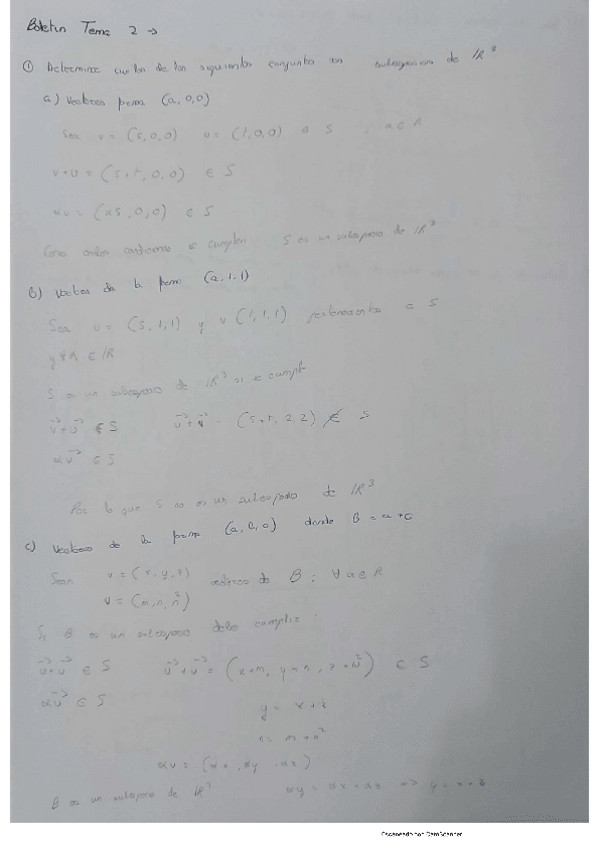 Boletin Tema 2 →
① Determine cuales de los siguientes conjuntos son subespacios de IR³
a) Vectores forma (a,0,0)
Sea v = (s,0,0) u = (t,0,0) e S
v+u = (s+t,0,0) ∈ S
αv = (αs,0,0) ∈ S
Como ambas condiciones se cumplen S es un subespacio de IR³
b) Vectores de la forma (a,1,1)
Sea u = (s,1,1) y v (t,1,1) pertenecientes a S
∈ IR
S es un subespacio de IR³ si se cumple
v+u ∈ S u+v = (s+t,2,2) ∉ S
αv ∈ S
Por lo que S no es un subespacio de IR³
c) Vectores de la forma donde B = a+c
Sean v = (x,y,z) vectores de B; ∀ a ∈ R
Si B es un subespacio debe cumplir:
v+u ∈ S ∈ S
αu ∈ S
y = x+z
B es un subespacio de IR³ αy = αx+αz => y = x+z
Escaneado con CamScanner